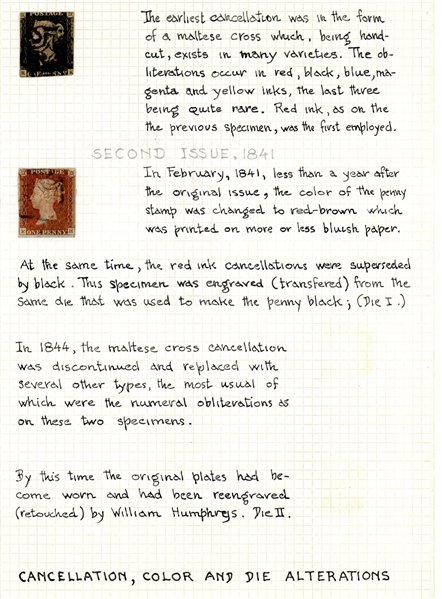 POSTAGE
ONE PENNY
The earliest cancellation was in the form
of a maltese cross which, being hand-
cut, exists in many varieties. The ob-
literations occur in red, black, blue, ma-
genta and yellow inks, the last three
being quite rare. Red ink, as on the
the previous specimen, was the first employed.
SECOND ISSUE, 1841
POSTAGE
ONE PENNY
In February, 1841, less than a year after
the original issue, the color of the penny
stamp was changed to red-brown which
was printed on more or less bluish paper.
At the same time, the red ink cancellations were superseded
by black. This specimen was engraved (transfered) from the
same die that was used to make the penny black; (Die I.)
In 1844, the maltese cross cancellation
was discontinued and replaced with
several other types, the most usual of
which were the numeral obliterations as
on these two specimens.
By this time the original plates had be-
come worn and had been reengraved
(retouched) by William Humphrys. Die II.
CANCELLATION, COLOR AND DIE ALTERATIONS